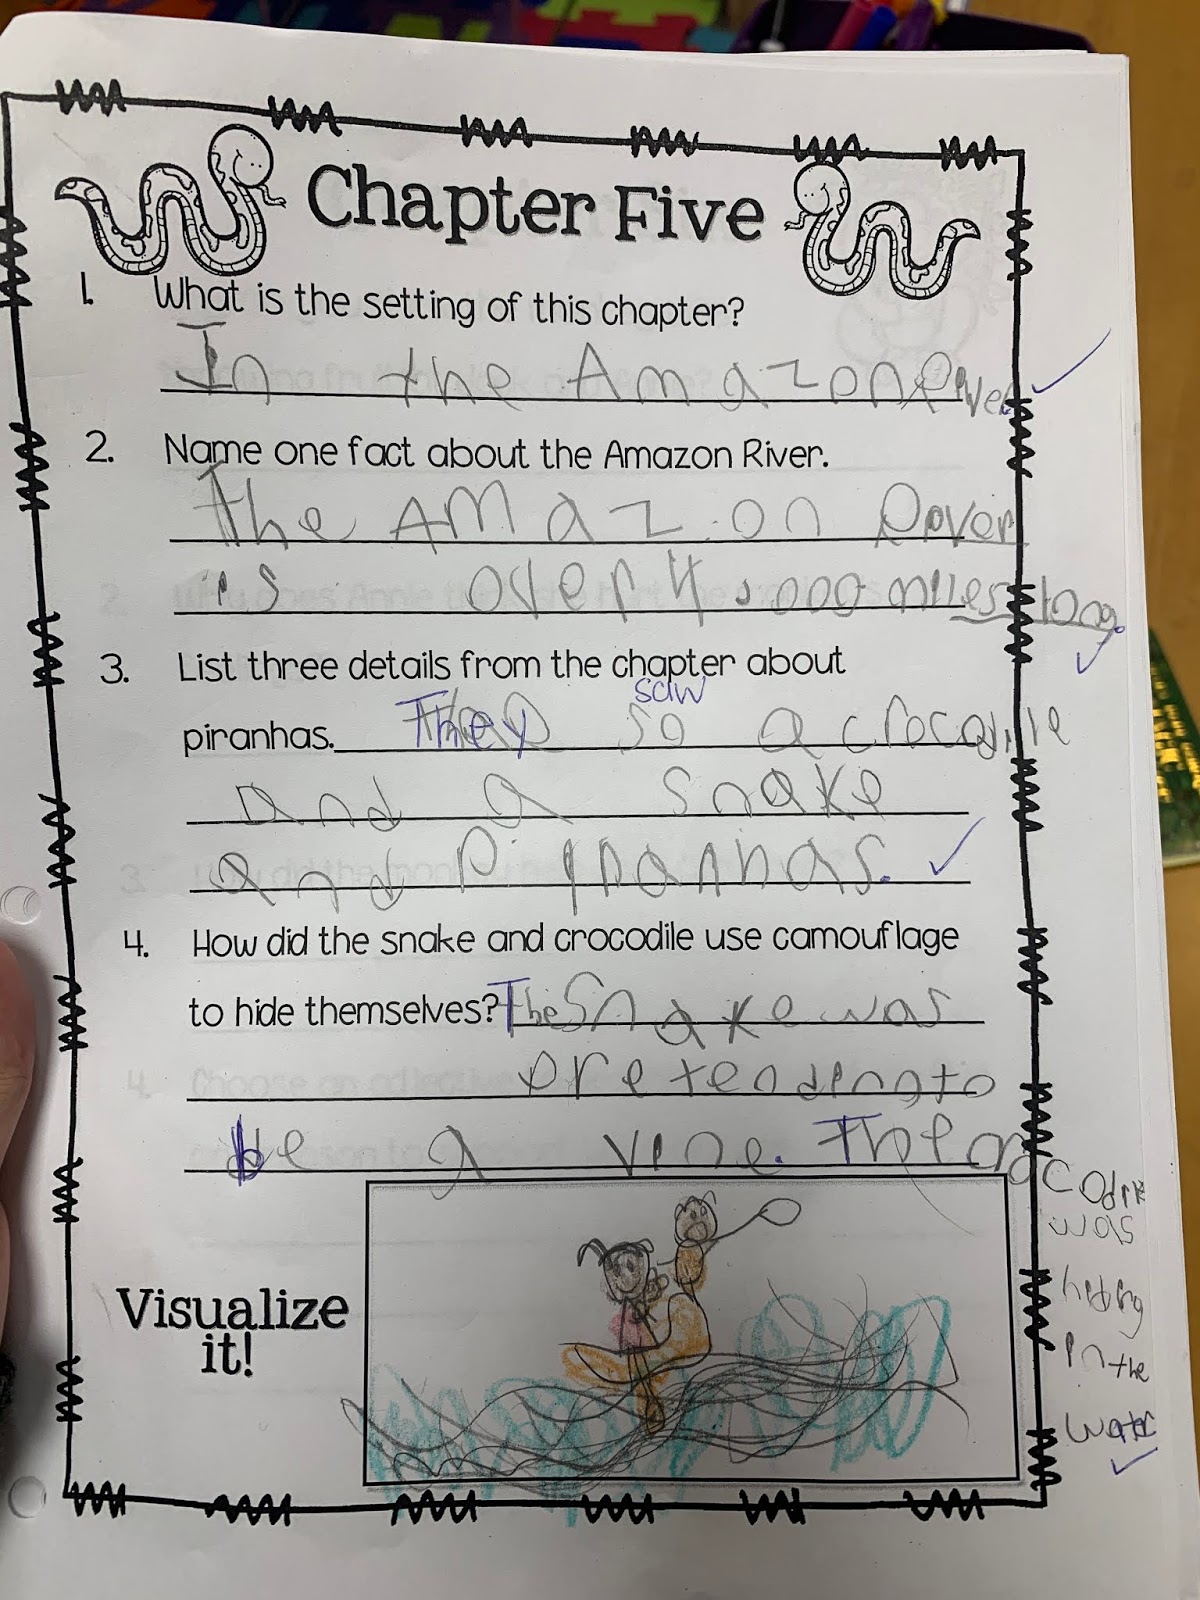 Chapter Five
1. What is the setting of this chapter?
In the Amazon River
2. Name one fact about the Amazon River.
The AMazon River
is over 4,000 miles long.
3. List three details from the chapter about
saw
piranhas. They so a crocodile
and a snake
and piranhas.
4. How did the snake and crocodile use camouflage
to hide themselves? The Snake was
pretending to
be a vine. The
was
hiding
in the
water
Visualize
it!